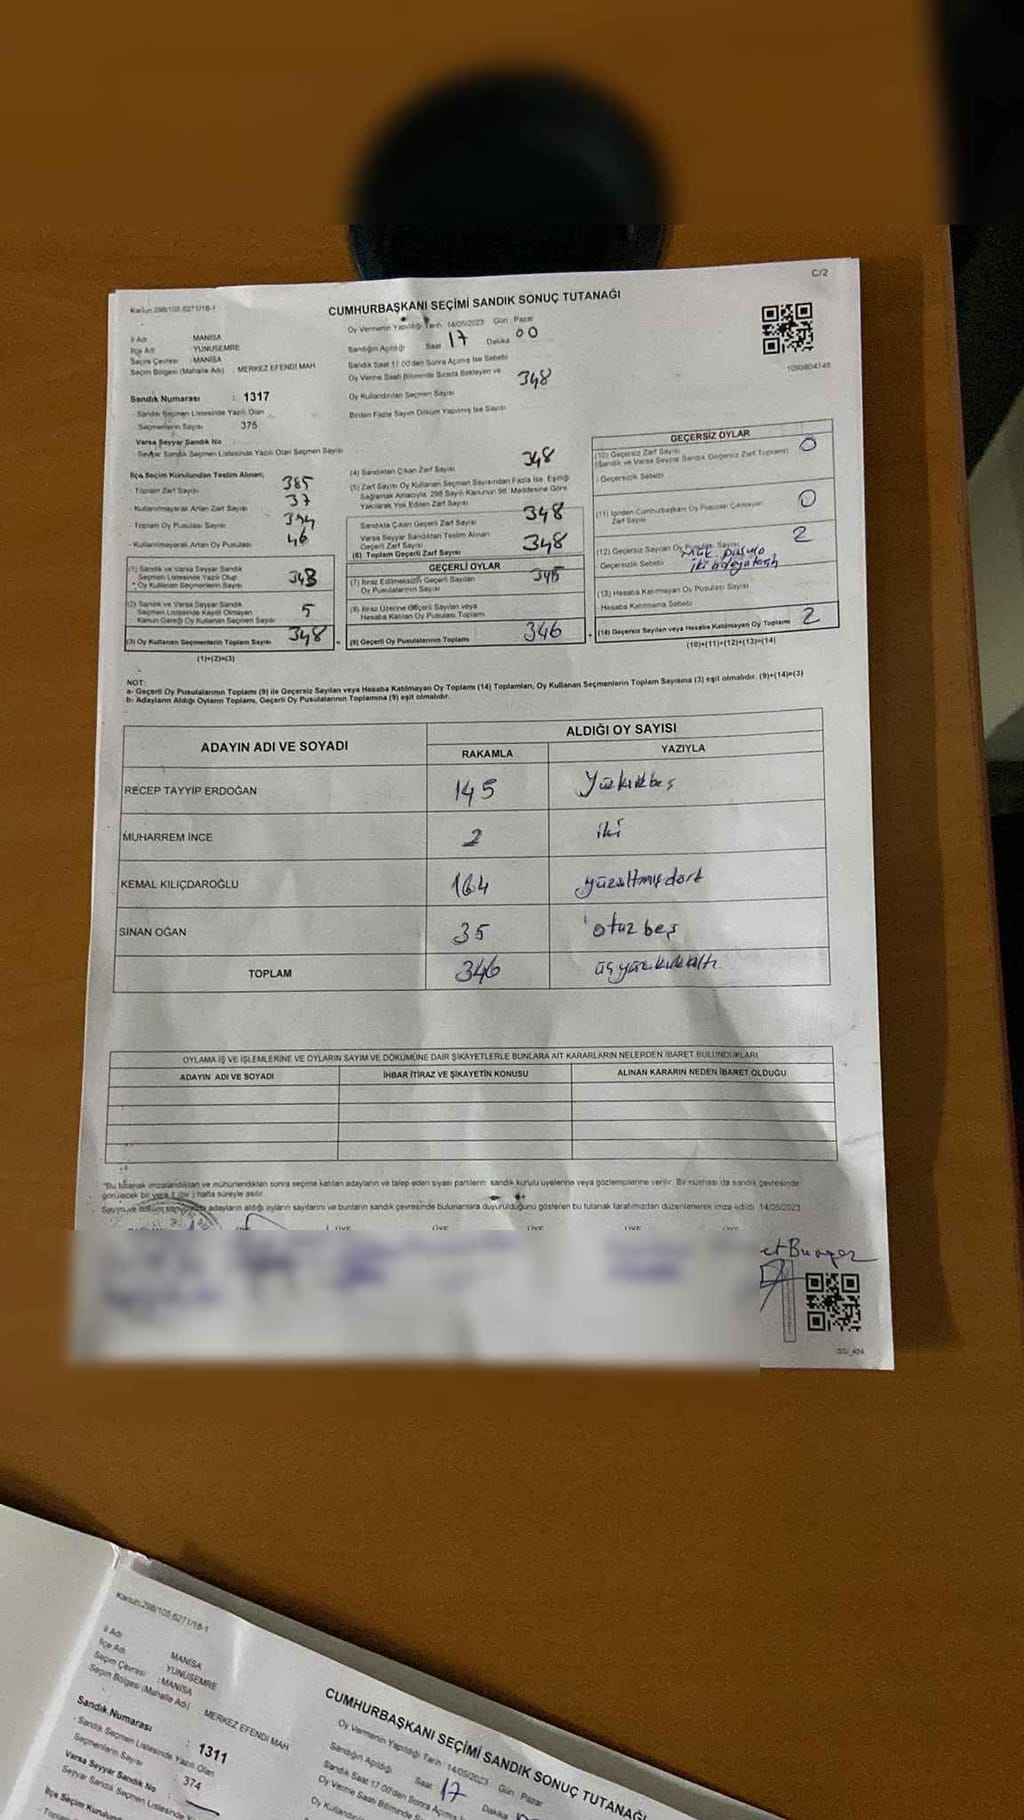 C/2
Kanun:298/105,6271/18-1
CUMHURBAŞKANI SEÇİMİ SANDIK SONUÇ TUTANAĞI
İl Adı : MANİSA
İlçe Adı : YUNUSEMRE
Seçim Çevresi : MANİSA
Seçim Bölgesi (Mahalle Adı) : MERKEZ EFENDİ MAH
Oy Vermenin Yapıldığı Tarih 14/05/2023 Gün : Pazar
Sandığın Açıldığı Saat 17 Dakika 00
Sandık Saat 17:00'den Sonra Açılmış İse Sebebi
Oy Verme Saati Bitiminde Sırada Bekleyen ve
Oy Kullandırılan Seçmen Sayısı 348
Birden Fazla Sayım Döküm Yapılmış İse Sayısı
Sandık Numarası : 1317
- Sandık Seçmen Listesinde Yazılı Olan
Seçmenlerin Sayısı 375
Varsa Seyyar Sandık No
- Seyyar Sandık Seçmen Listesinde Yazılı Olan Seçmen Sayısı
İlçe Seçim Kurulundan Teslim Alınan;
- Toplam Zarf Sayısı 385
- Kullanılmayarak Artan Zarf Sayısı 37
- Toplam Oy Pusulası Sayısı
- Kullanılmayarak Artan Oy Pusulası 46
(1) Sandık ve Varsa Seyyar Sandık
Seçmen Listesinde Yazılı Olup
Oy Kullanan Seçmenlerin Sayısı 343
(2) Sandık ve Varsa Seyyar Sandık
Seçmen Listesinde Kayıtlı Olmayan
Kanun Gereği Oy Kullanan Seçmen Sayısı 5
(3) Oy Kullanan Seçmenlerin Toplam Sayısı 348
(1)+(2)=(3)
(4) Sandıktan Çıkan Zarf Sayısı 348
(5) Zarf Sayısı Oy Kullanan Seçmen Sayısından Fazla İse, Eşitliği
Sağlamak Amacıyla, 298 Sayılı Kanunun 98. Maddesine Göre
Yakılarak Yok Edilen Zarf Sayısı
Sandıkta Çıkan Geçerli Zarf Sayısı 348
Varsa Seyyar Sandıktan Teslim Alınan
Geçerli Zarf Sayısı
(6) Toplam Geçerli Zarf Sayısı 348
GEÇERLİ OYLAR
(7) İtiraz Edilmeksizin Geçerli Sayılan
Oy Pusulalarının Sayısı
(8) İtiraz Üzerine Geçerli Sayılan veya
Hesaba Katılan Oy Pusulası Toplamı
(9) Geçerli Oy Pusulalarının Toplamı 346
GEÇERSİZ OYLAR
(10) Geçersiz Zarf Sayısı 0
(Sandık ve Varsa Seyyar Sandık Geçersiz Zarf Toplamı)
Geçersizlik Sebebi
(11) İçinden Cumhurbaşkanı Oy Pusulası Çıkmayan
Zarf Sayısı 0
(12) Geçersiz Sayılan Oy Pusulası Sayısı 2
Geçersizlik Sebebi
(13) Hesaba Katılmayan Oy Pusulası Sayısı
Hesaba Katılmama Sebebi
(14) Geçersiz Sayılan veya Hesaba Katılmayan Oy Toplamı 2
(10)+(11)+(12)+(13)=(14)
NOT:
a- Geçerli Oy Pusulalarının Toplamı (9) ile Geçersiz Sayılan veya Hesaba Katılmayan Oy Toplamı (14) Toplamları, Oy Kullanan Seçmenlerin Toplam Sayısına (3) eşit olmalıdır. (9)+(14)=(3)
b- Adayların Aldığı Oyların Toplamı, Geçerli Oy Pusulalarının Toplamına (9) eşit olmalıdır.
ADAYIN ADI VE SOYADI ALDIĞI OY SAYISI
RAKAMLA YAZIYLA
RECEP TAYYİP ERDOĞAN 145 Yüzkırkbeş
MUHARREM İNCE 2 iki
KEMAL KILIÇDAROĞLU 164 yüzaltmışdört
SİNAN OĞAN 35 otuzbeş
TOPLAM 346 üçyüzkırkaltı
OYLAMA İŞ VE İŞLEMLERİNE VE OYLARIN SAYIM VE DÖKÜMÜNE DAİR ŞİKAYETLERLE BUNLARA AİT KARARLARIN NELERDEN İBARET BULUNDUKLARI
ADAYIN ADI VE SOYADI İHBAR İTİRAZ VE ŞİKAYETİN KONUSU ALINAN KARARIN NEDEN İBARET OLDUĞU
*Bu tutanak imzalandıktan ve mühürlendikten sonra seçime katılan adayların ve talep eden siyasi partilerin sandık kurulu üyelerine veya gözlemcilerine verilir. Bir nüshası da sandık çevresinde
görülecek bir yere 1 (bir) hafta süreyle asılır.
Sayım ve döküm sonucunda adayların aldığı oyların sayılarını ve bunların sandık çevresinde bulunanlara duyurulduğunu gösteren bu tutanak tarafımızdan düzenlenerek imza edildi 14/05/2023
ÜYE ÜYE ÜYE ÜYE ÜYE
Kanun:298/105,6271/18-1
İl Adı MANİSA
İlçe Adı YUNUSEMRE
Seçim Çevresi : MANİSA
Seçim Bölgesi (Mahalle Adı) MERKEZ EFENDİ MAH
CUMHURBAŞKANI SEÇİMİ SANDIK SONUÇ TUTANAĞI
Oy Vermenin Yapıldığı Tarih : 14/05/2023 Gün : Pazar
Sandığın Açıldığı Saat 17 Dakika
Sandık Saat 17:00'den Sonra Açılmış İ
Oy Verme Saati Bitiminde S
Oy Kullandırıla
Sandık Numarası : 1311
- Sandık Seçmen Listesinde Yazılı Olan
Seçmenlerin Sayısı 374
Varsa Seyyar Sandık No
Seyyar Sandık Seçmen Listesinde Y
İlçe Seçim Kurulun
- Toplam